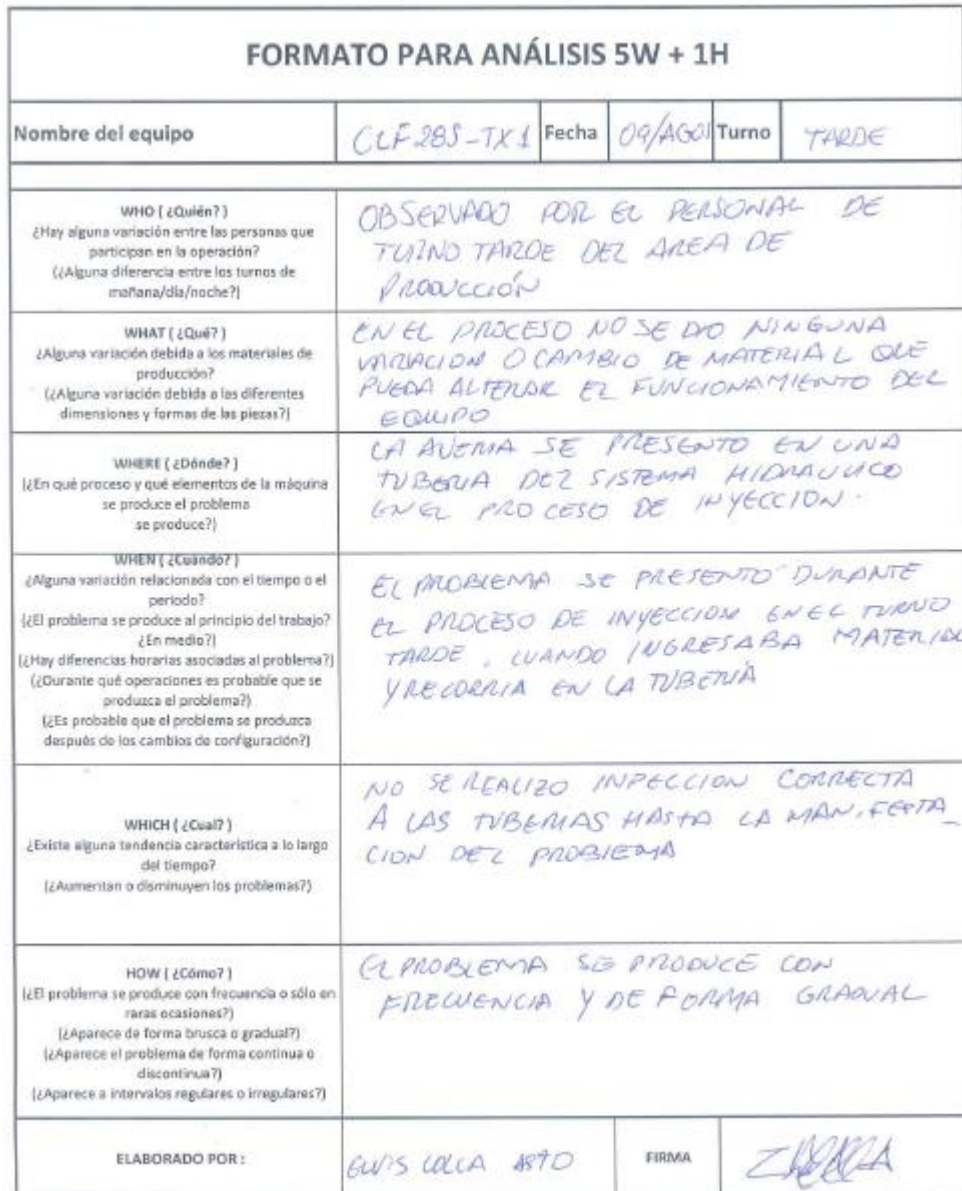 FORMATO PARA ANÁLISIS 5W + 1H
Nombre del equipo CLF 285-TX1 Fecha 09/AGO Turno TARDE
WHO ( ¿Quién? )
¿Hay alguna variación entre las personas que
participan en la operación?
(¿Alguna diferencia entre los turnos de
mañana/día/noche?)
OBSERVADO POR EL PERSONAL DE
TURNO TARDE DEL AREA DE
PRODUCCIÓN
WHAT ( ¿Qué? )
¿Alguna variación debida a los materiales de
producción?
(¿Alguna variación debida a las diferentes
dimensiones y formas de las piezas?)
EN EL PROCESO NO SE DIO NINGUNA
VARIACION O CAMBIO DE MATERIAL QUE
PUEDA ALTERAR EL FUNCIONAMIENTO DEL
EQUIPO
WHERE ( ¿Dónde? )
(¿En qué proceso y qué elementos de la máquina
se produce el problema
se produce?)
LA AVERIA SE PRESENTO EN UNA
TUBERIA DEL SISTEMA HIDRAULICO
EN EL PROCESO DE INYECCION.
WHEN ( ¿Cuándo? )
¿Alguna variación relacionada con el tiempo o el
periodo?
(¿El problema se produce al principio del trabajo?
¿En medio?)
(¿Hay diferencias horarias asociadas al problema?)
(¿Durante qué operaciones es probable que se
produzca el problema?)
(¿Es probable que el problema se produzca
después de los cambios de configuración?)
EL PROBLEMA SE PRESENTO DURANTE
EL PROCESO DE INYECCION EN EL TURNO
TARDE, CUANDO INGRESABA MATERIAL
Y RECORRIA EN LA TUBERIA
WHICH ( ¿Cual? )
¿Existe alguna tendencia característica a lo largo
del tiempo?
(¿Aumentan o disminuyen los problemas?)
NO SE REALIZO INPECCION CORRECTA
A LAS TUBERIAS HASTA LA MANIFESTA_
CION DEL PROBLEMA
HOW ( ¿Cómo? )
(¿El problema se produce con frecuencia o sólo en
raras ocasiones?)
(¿Aparece de forma brusca o gradual?)
(¿Aparece el problema de forma continua o
discontinua?)
(¿Aparece a intervalos regulares o irregulares?)
EL PROBLEMA SE PRODUCE CON
FRECUENCIA Y DE FORMA GRADUAL
ELABORADO POR : ELVIS CCLLA ASTO FIRMA